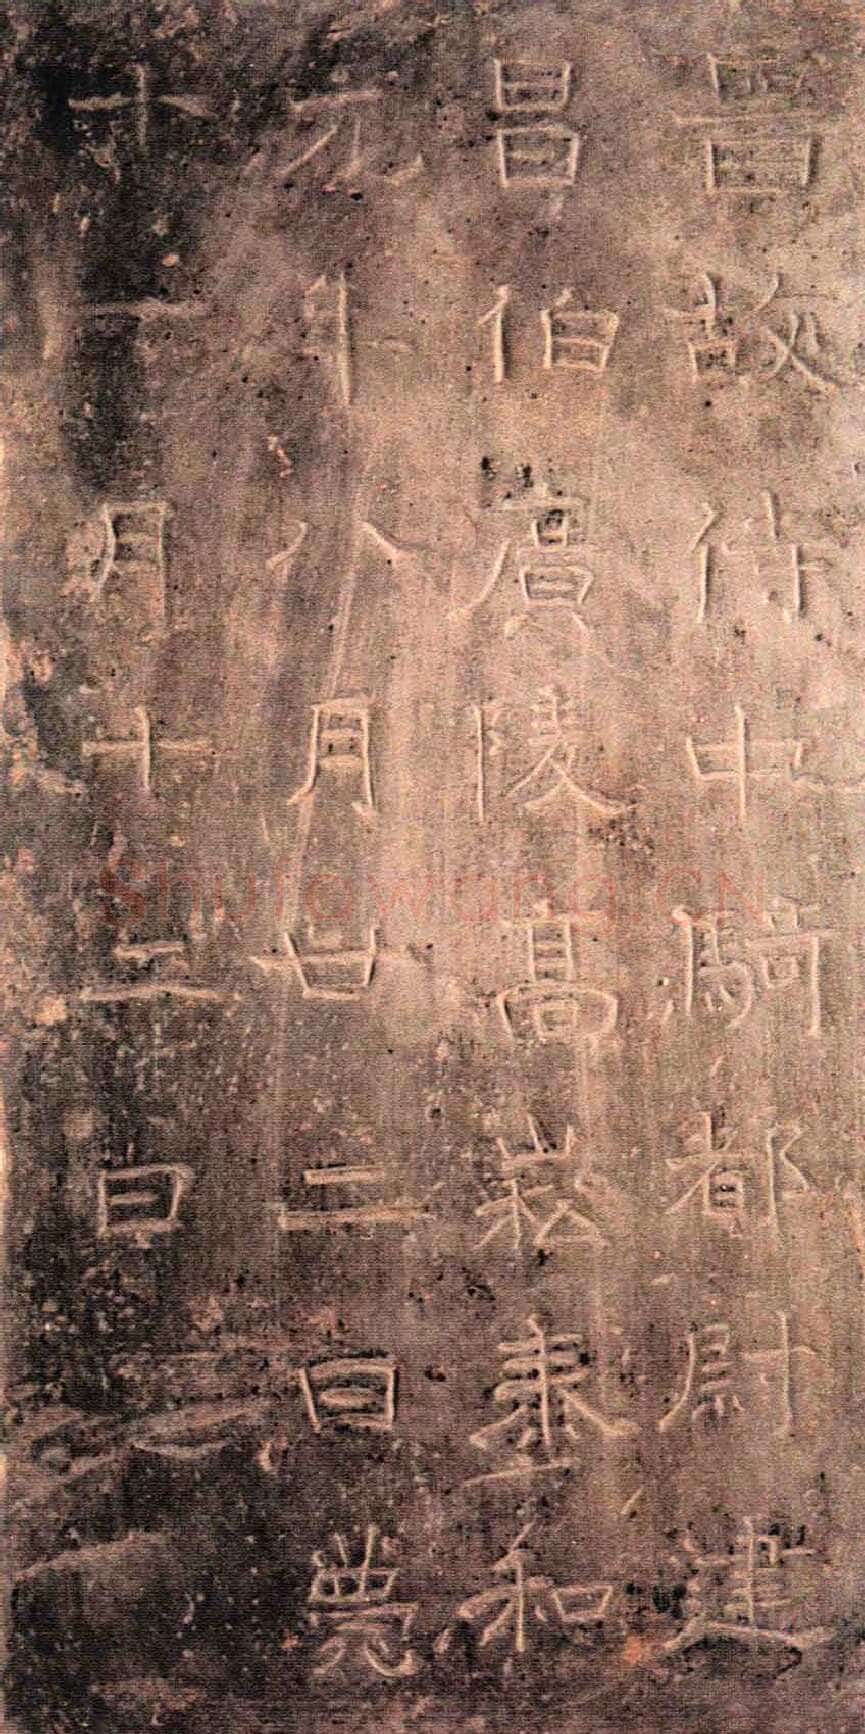 晉故侍中騎都尉建
昌伯廣陵高崧泰和
元年八月廿二日薨
十一月十二日
Shufawang.CN